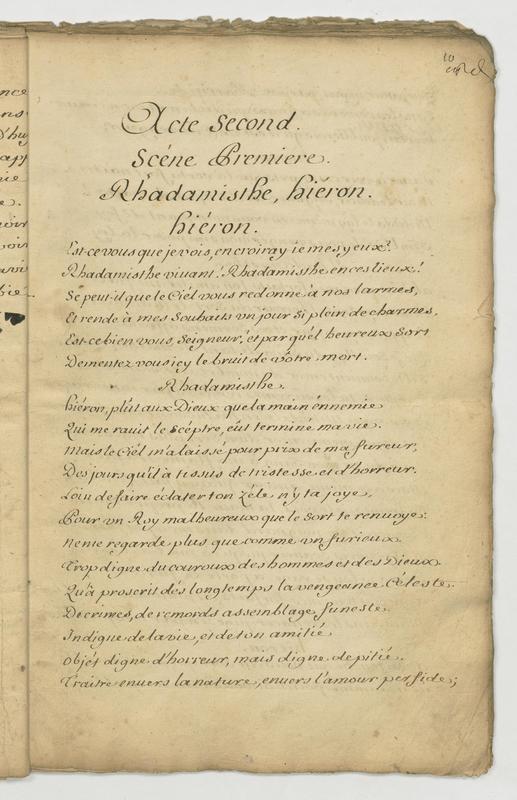 Acte Second.
Scéne Premiere.
Rhadamisthe, hiéron.
hiéron.
Est-ce vous que je vois, en croiray ie mes yeux?
Rhadamisthe viuant! Rhadamisthe en ces lieux!
Se peut-il que le Ciel vous redonne à nos larmes,
Et rende à mes Souhaits vn jour Si plein de charmes,
Est-ce bien vous, Seigneur, et par quel heureux Sort
Dementez vous icy le bruit de vôtre mort.
Rhadamisthe.
hiéron, plût aux Dieux que la main énnemie
Qui me rauit le Scéptre, eût terminé ma vie.
Mais le Ciel m'a laissé pour prix de ma fureur,
Des jours qu'il à tissus de tristesse et d'horreur.
Loin de faire éclater ton zéle n'y ta joye,
Pour vn Roy malheureux que le Sort te renuoye.
Ne me regarde plus que comme vn furieux.
Trop digne du couroux des hommes et des Dieux.
Qu'à proscrit dés longtemps la vengeance Céleste.
De crimes, de remords assemblage funeste.
Indigne de la vie, et de ton amitié
Objét digne d'horreur, mais digne de pitié.
Traitre enuers la nature, enuers l'amour perfide;